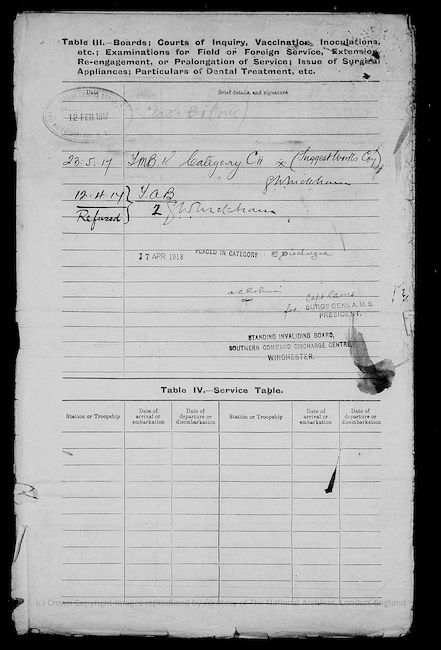 Table III.—Boards; Courts of Inquiry, Vaccination, Inoculations,
etc.; Examinations for Field or Foreign Service, Extension,
Re-engagement, or Prolongation of Service; Issue of Surgical
Appliances; Particulars of Dental Treatment, etc.
Date
Brief details, and signature
12 FEB 1917
23.5.17 Category CII x (Suggest Works Coy)
12.4.17 T.A.B
Refused 2
17 APR 1918 PLACED IN CATEGORY E Discharged
Capt RAMC
for SURGN GENL A.M.S.
PRESIDENT.
STANDING INVALIDING BOARD,
SOUTHERN COMMAND DISCHARGE CENTRE,
WINCHESTER.
Table IV.—Service Table.
Station or Troopship
Date of arrival or embarkation
Date of departure or disembarkation
Station or Troopship
Date of arrival or embarkation
Date of departure or disembarkation
(c) Crown Copyright Images reproduced by courtesy of The National Archives, London, England